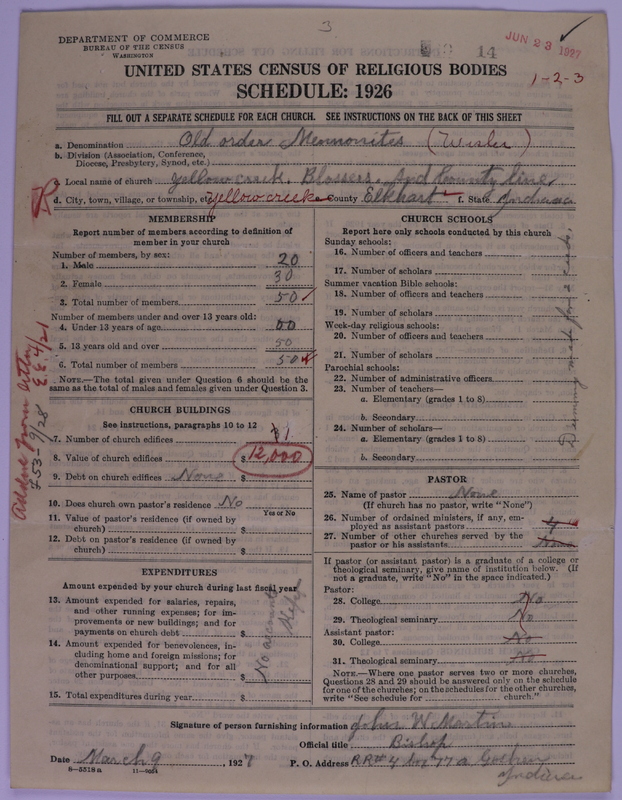 3
DEPARTMENT OF COMMERCE
BUREAU OF THE CENSUS
WASHINGTON
14
JUN 23 1927
1-2-3
UNITED STATES CENSUS OF RELIGIOUS BODIES
SCHEDULE: 1926
FILL OUT A SEPARATE SCHEDULE FOR EACH CHURCH. SEE INSTRUCTIONS ON THE BACK OF THIS SHEET
a. Denomination Old order Mennonites (Wisler)
b. Division (Association, Conference, Diocese, Presbytery, Synod, etc.)
c. Local name of church Yellow creek. Blossers. And County line
d. City, town, village, or township, etc. Yellow creek County Elkhart f. State Indiana
MEMBERSHIP
Report number of members according to definition of
member in your church
Number of members, by sex:
1. Male 20
2. Female 30
3. Total number of members 50
Number of members under and over 13 years old:
4. Under 13 years of age 00
5. 13 years old and over 50
6. Total number of members 50
NOTE.—The total given under Question 6 should be the
same as the total of males and females given under Question 3.
CHURCH BUILDINGS
See instructions, paragraphs 10 to 12
7. Number of church edifices 1
8. Value of church edifices $ 12,000
9. Debt on church edifices None $
10. Does church own pastor's residence No
Yes or No
11. Value of pastor's residence (if owned by
church) $
12. Debt on pastor's residence (if owned by
church) $
EXPENDITURES
Amount expended by your church during last fiscal year
13. Amount expended for salaries, repairs,
and other running expenses; for im-
provements or new buildings; and for
payments on church debt $
14. Amount expended for benevolences, in-
cluding home and foreign missions; for
denominational support; and for all
other purposes $
15. Total expenditures during year $
No account Kept
Added from letter
753-9/28 EE 4/21
CHURCH SCHOOLS
Report here only schools conducted by this church
Sunday schools:
16. Number of officers and teachers
17. Number of scholars
Summer vacation Bible schools:
18. Number of officers and teachers
19. Number of scholars
Week-day religious schools:
20. Number of officers and teachers
21. Number of scholars
Parochial schools:
22. Number of administrative officers
23. Number of teachers—
a. Elementary (grades 1 to 8)
b. Secondary
24. Number of scholars—
a. Elementary (grades 1 to 8)
b. Secondary
made for 2
PASTOR
25. Name of pastor None
(If church has no pastor, write "None")
26. Number of ordained ministers, if any, em-
ployed as assistant pastors 4
27. Number of other churches served by the
pastor or his assistants None
If pastor (or assistant pastor) is a graduate of a college or
theological seminary, give name of institution below. (If
not a graduate, write "No" in the space indicated.)
Pastor:
28. College No
29. Theological seminary No
Assistant pastor:
30. College No
31. Theological seminary No
NOTE.—Where one pastor serves two or more churches,
Questions 28 and 29 should be answered only on the schedule
for one of the churches; on the schedules for the other churches,
write "See schedule for church."
Signature of person furnishing information John W. Martin
Official title Bishop
Date March 9, 1927 P. O. Address R R # 4 box 77 a Goshen
Indiana
8-5518 a 11-9064